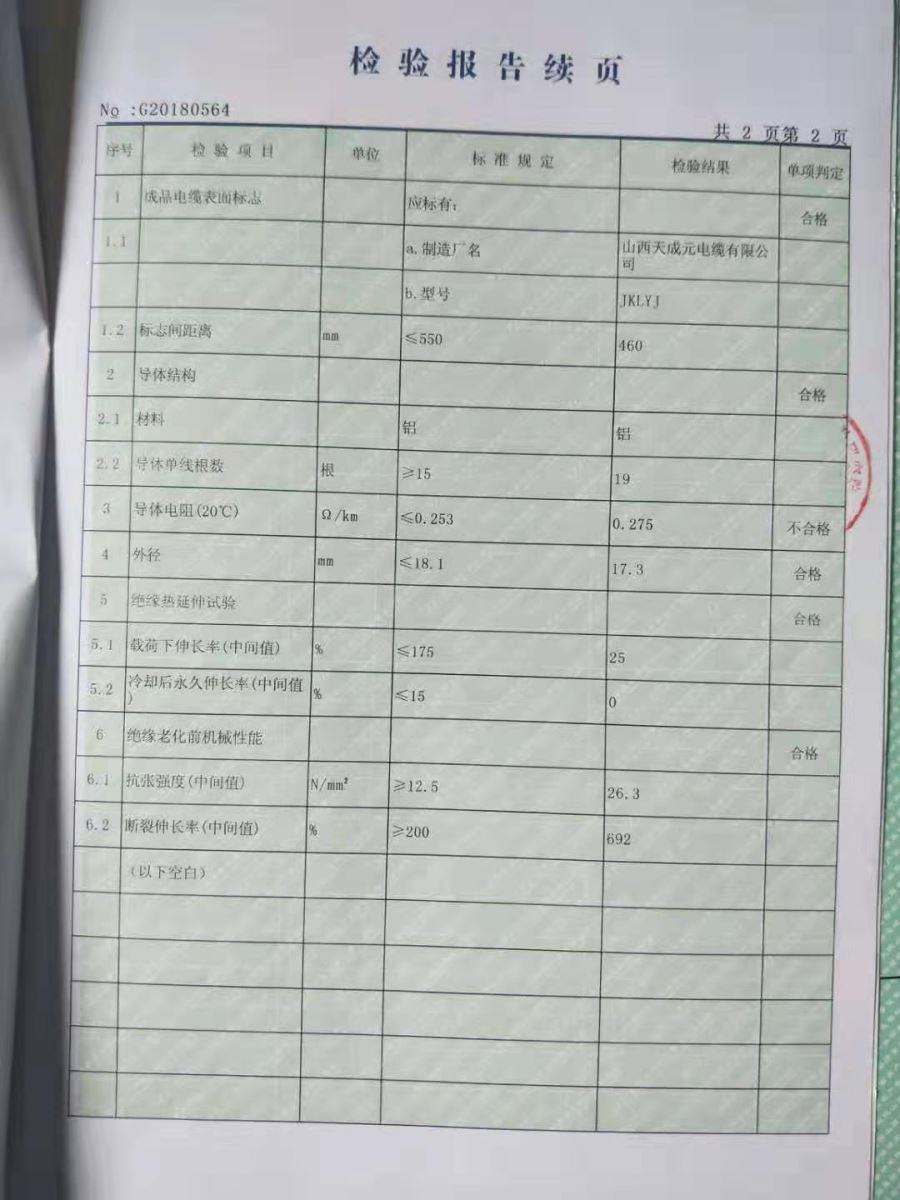 检验报告续页
No :G20180564
共 2 页第 2 页
序号 检验项目 单位 标准规定 检验结果 单项判定
1 成品电缆表面标志 应标有： 合格
1.1 a.制造厂名 山西天成元电缆有限公
司
b.型号 JKLYJ
1.2 标志间距离 mm ≤550 460
2 导体结构 合格
2.1 材料 铝 铝
2.2 导体单线根数 根 ≥15 19
3 导体电阻(20℃) Ω/km ≤0.253 0.275 不合格
4 外径 mm ≤18.1 17.3 合格
5 绝缘热延伸试验 合格
5.1 载荷下伸长率(中间值) % ≤175 25
5.2 冷却后永久伸长率(中间值
) % ≤15 0
6 绝缘老化前机械性能 合格
6.1 抗张强度(中间值) N/mm² ≥12.5 26.3
6.2 断裂伸长率(中间值) % ≥200 692
（以下空白）